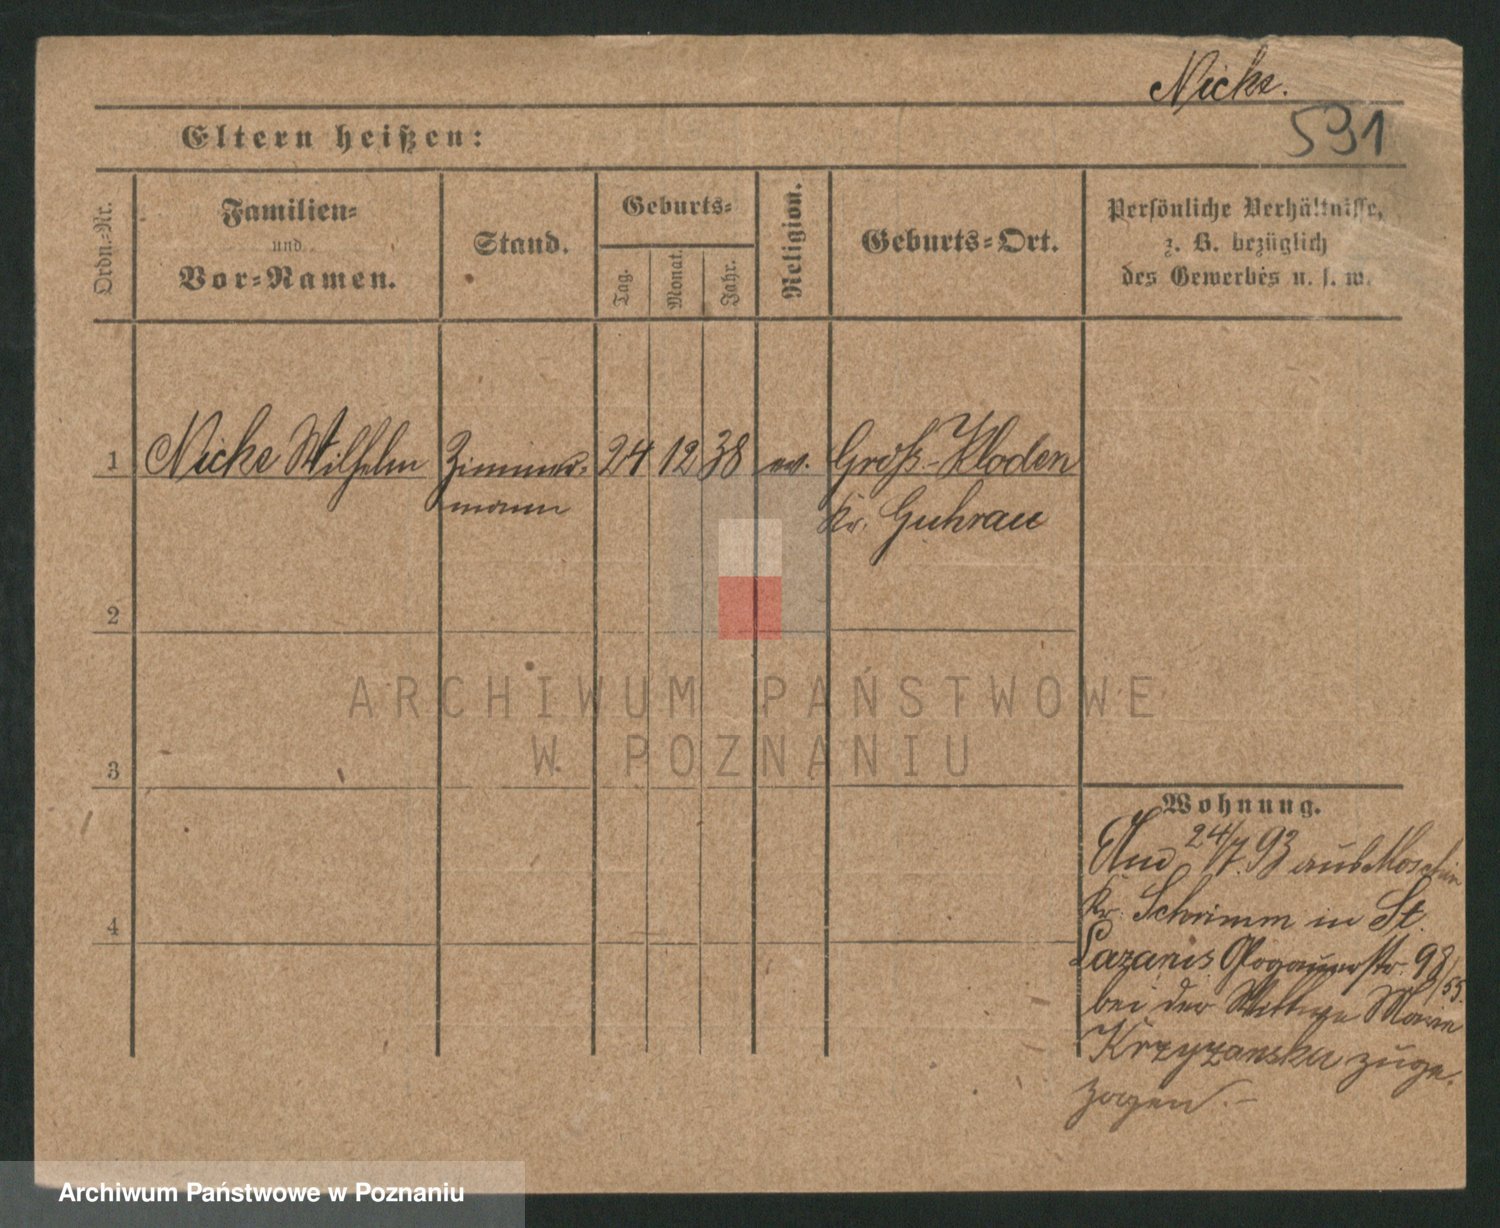 Nicke.
591
Eltern heißen:
Ordn.-Nr.
Familien-
und
Vor-Namen.
Stand.
Geburts-
Tag.
Monat.
Jahr.
Religion.
Geburts-Ort.
Persönliche Verhältnisse,
z. B. bezüglich
des Gewerbes u. s. w.
1 Nicke Wilhelm Zimmer- 24 12 38 ev. Groß-Kloden
mann Kr. Guhrau
2
3
4
Wohnung.
24/7. 93 aus Moschin
Kr. Schrimm in St.
Lazarus Glogauerstr. 98/55.
bei der Wittwe Marie
Krzyzanska zuge-
zogen. –
ARCHIWUM PAŃSTWOWE
W POZNANIU
Archiwum Państwowe w Poznaniu